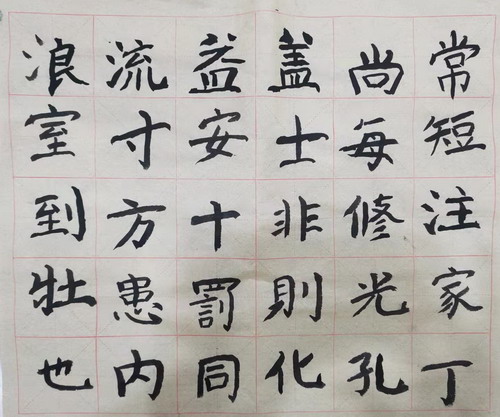 常短注家丁
尚每修光孔
盖士非則化
益安十罰同
流寸方患内
浪室到牡也